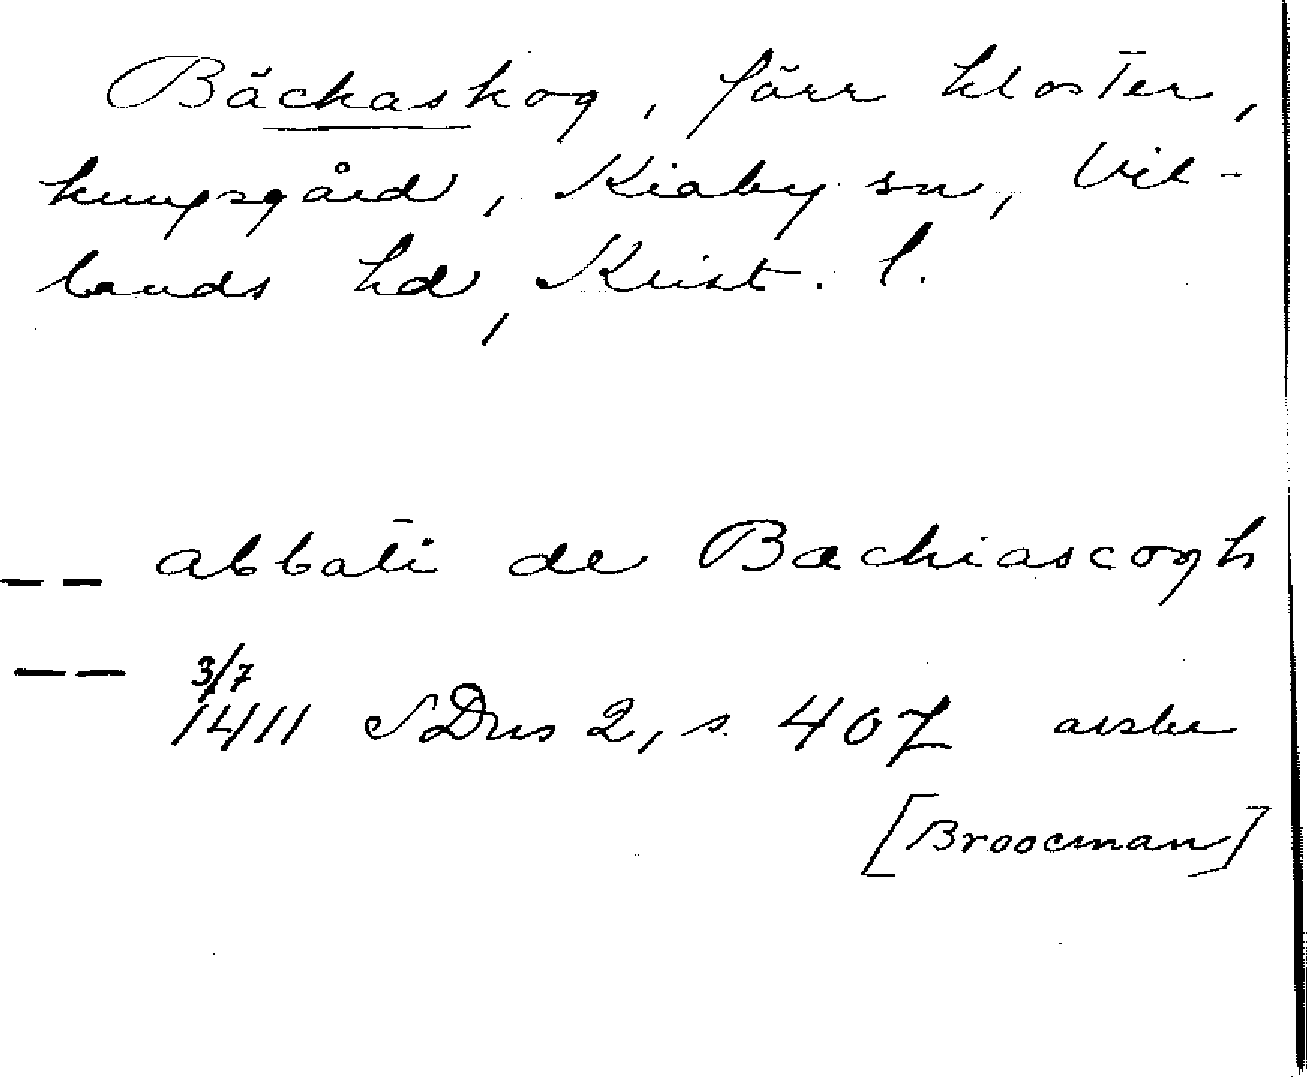 Bäckaskog, förr kloster,
kungsgård, Kiaby sn, Vil-
lands hd, Krist. l.
-- abbati de Bachiascogh
-- 3/7
1411 SDns 2, s. 407 avskr
[Broocman]